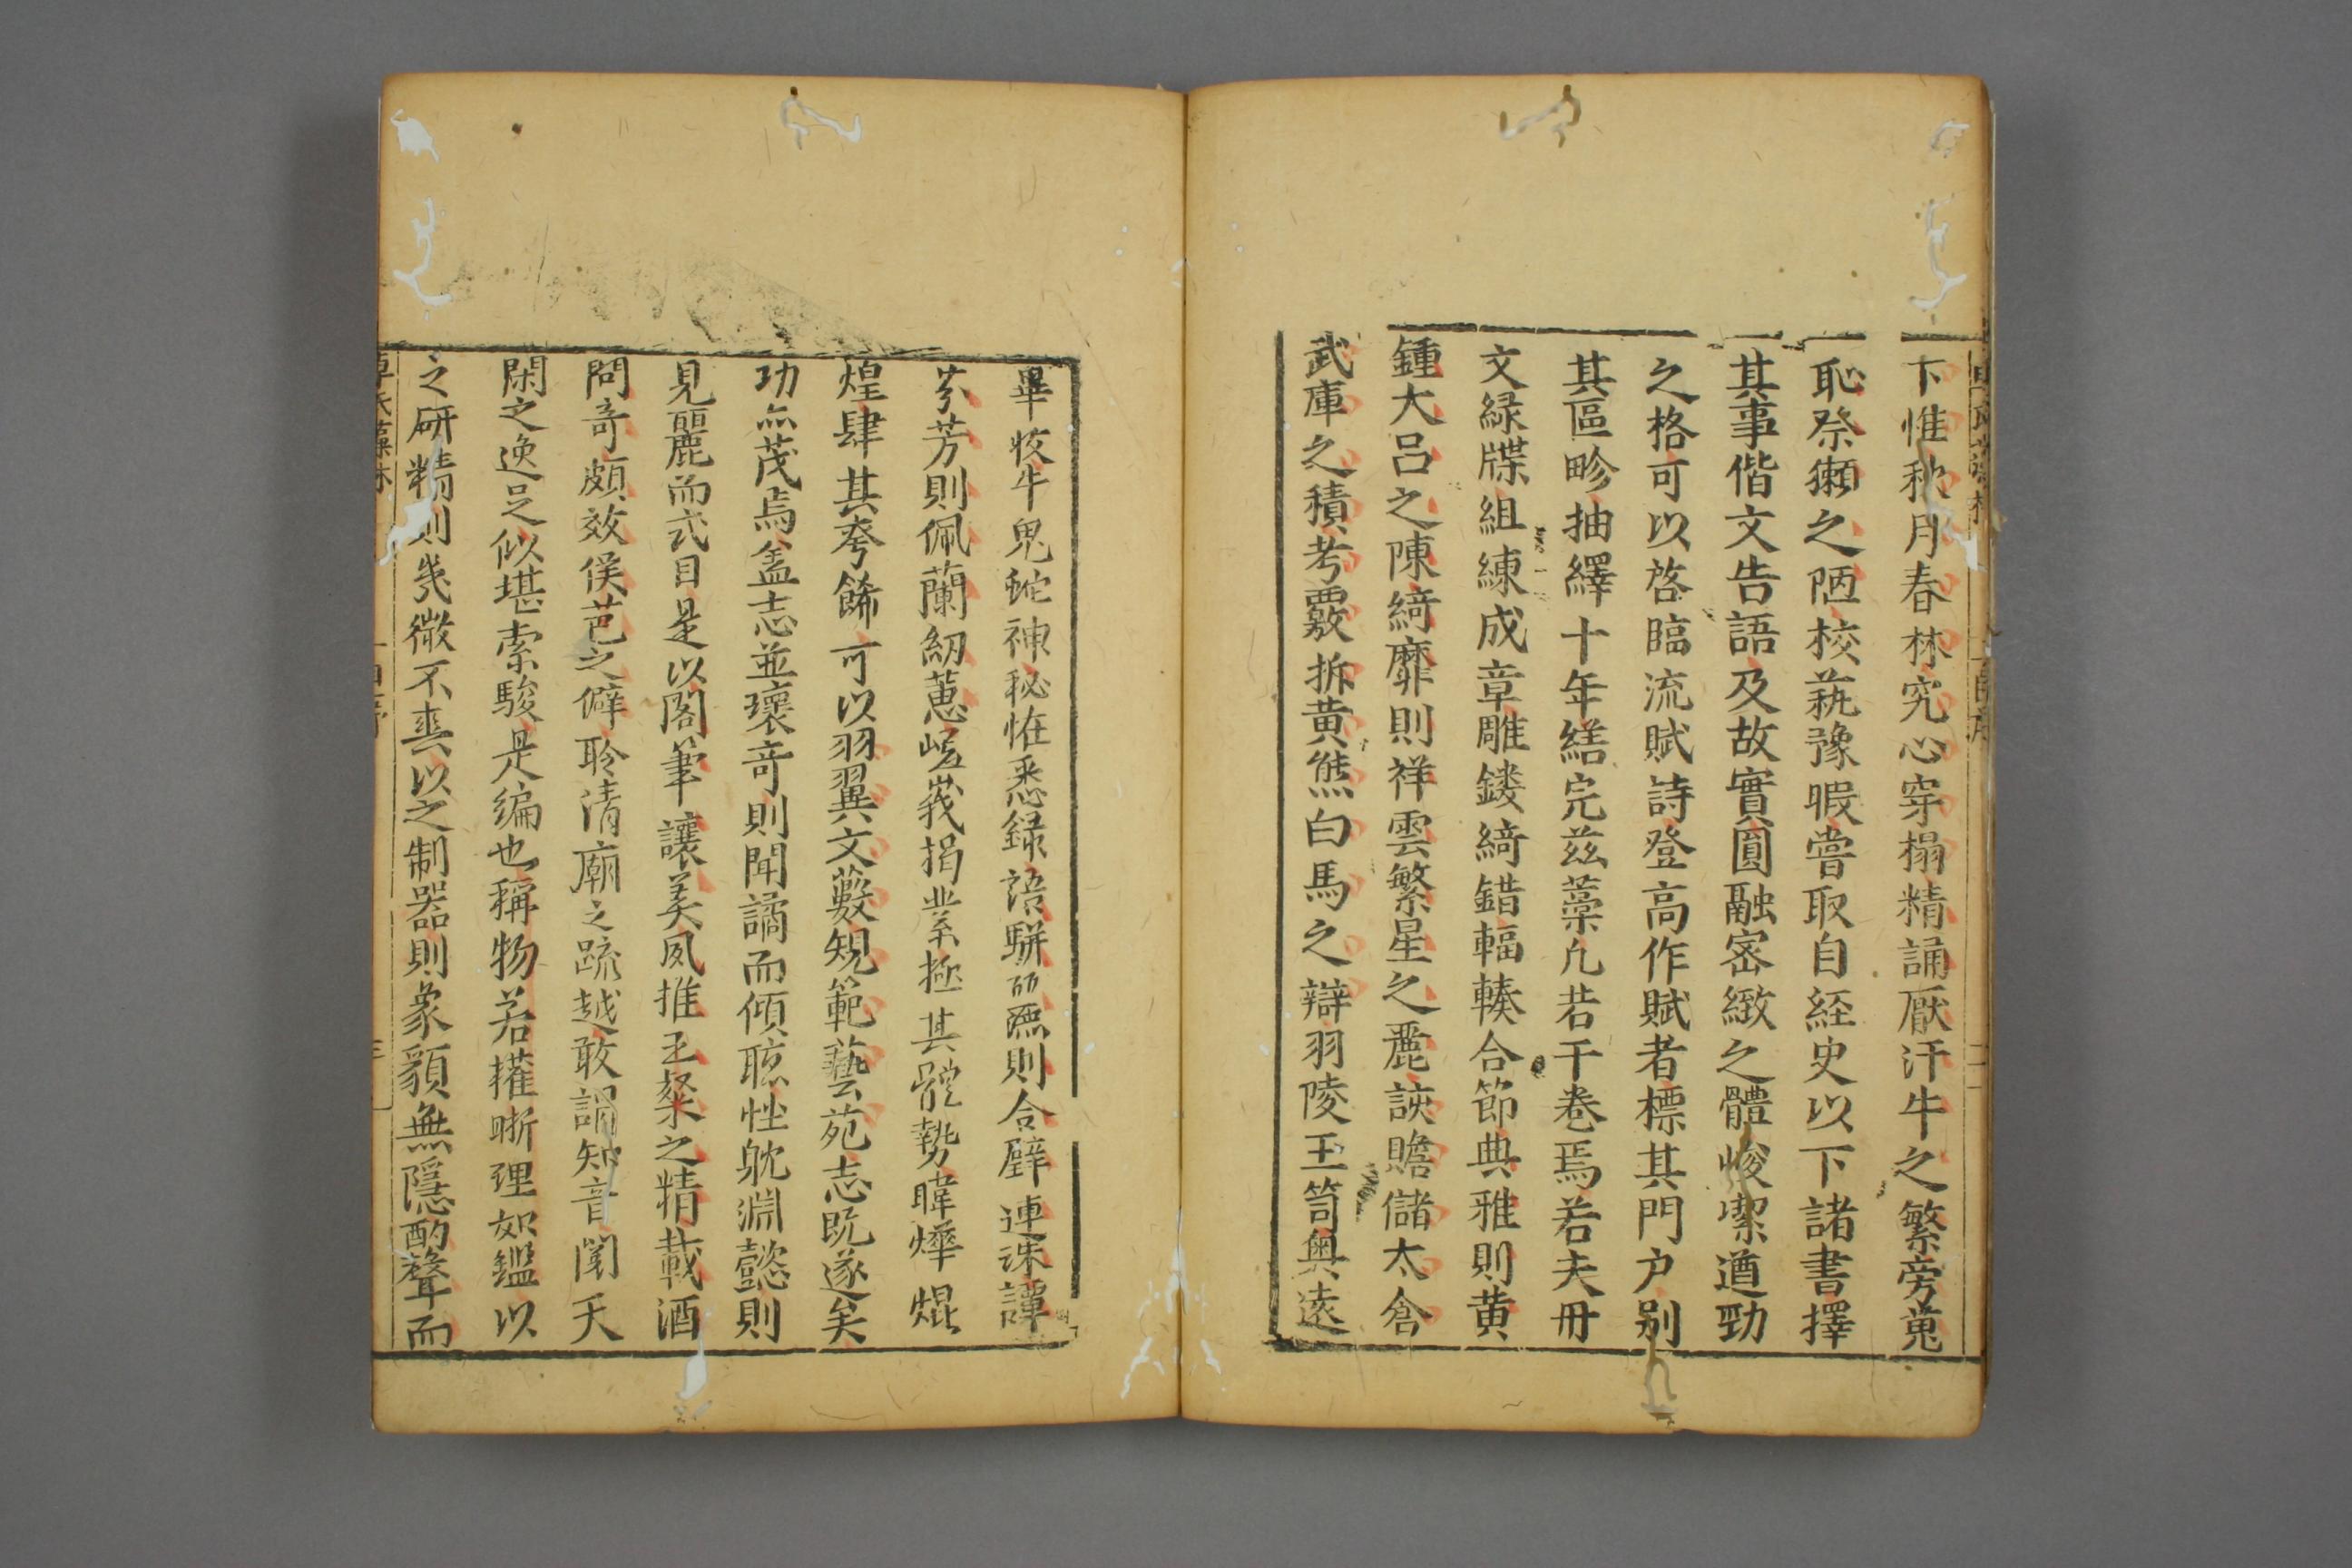 下惟秋月春林究心穿榻精誦厭汗牛之繁旁蒐
恥祭獺之陋校蓺豫暇嘗取自経史以下諸書擇
其事偕文告語及故實圓融宻緻之體峻潔遒勁
之格可以啓臨流賦詩登高作賦者標其門户别
其區畛抽繹十年繕完兹藁凢若干卷焉若夫冊
文緑牒組練成章雕鏤綺錯輻輳合節典雅則黄
鍾大呂之陳綺靡則祥雲繁星之麗該贍儲太倉
武庫之積考覈拆黄熊白馬之辯羽陵玉笥奥遠
畢收牛鬼蛇神秘恠悉録語駢麗則合璧連珠譚
芬芳則佩蘭紉蕙嵯峩揭業極其體勢暐燁焜
煌肆其夸餙可以羽翼文藪䂓範藝苑志既遂矣
功亦茂焉盖志並瓌竒則聞譎而傾聴性躭淵懿則
見麗而弍目是以閣筆讓美夙推王粲之精載酒
問竒頗效侯芭之僻聆清廟之䟽越敢謂知音閑天
閑之逸足似堪索駿是编也稱物若權晰理如鑑以
之研精則幾微不爽以之制器則象䫉無隱酌聲而
卓氏藻林